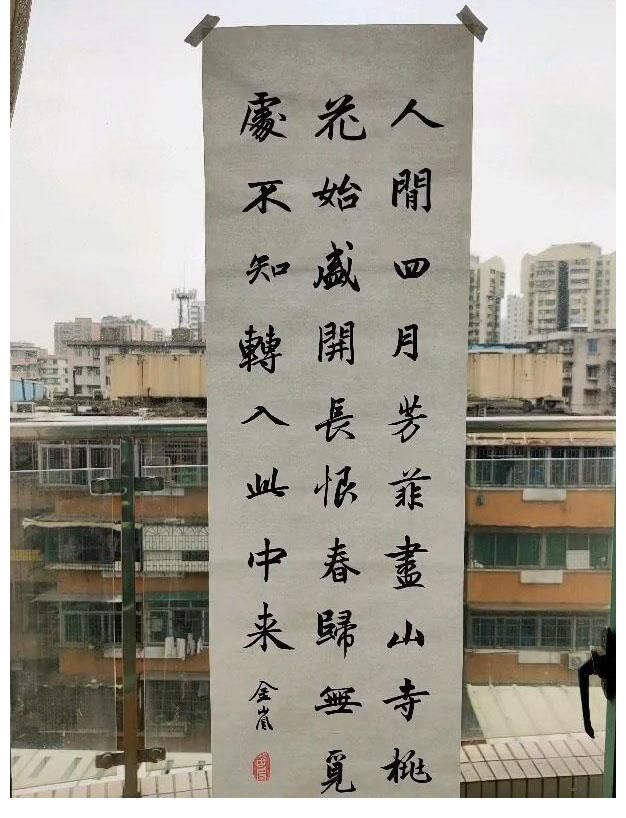 人間四月芳菲盡山寺桃
花始盛開長恨春歸無覓
處不知轉入此中来
金嵐